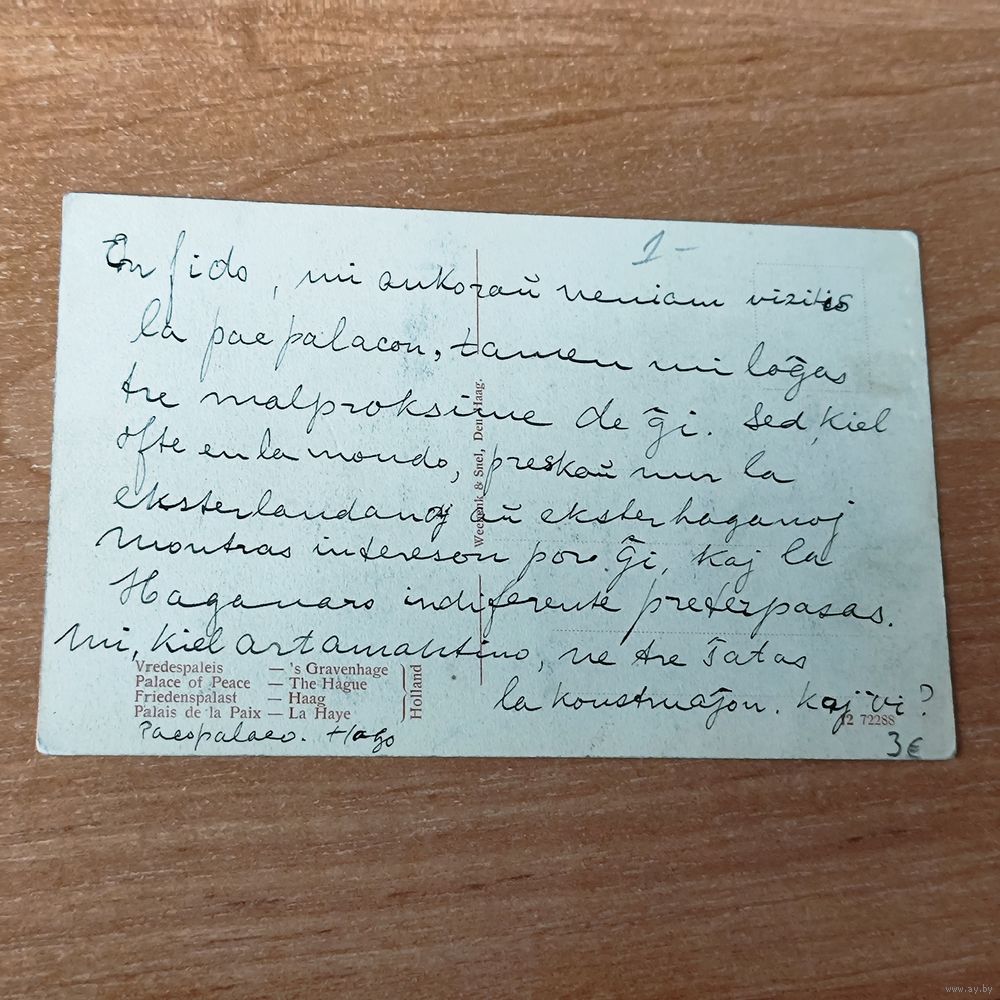 1-
En fido, mi ankoraŭ neniam vizitis
la pacpalacon, tamen mi loĝas
tre malproksime de ĝi. Sed, kiel
ofte en la mondo, preskaŭ nur la
eksterlandanoj aŭ eksterhaganoj
montras intereson por ĝi, kaj la
Haganaro indiferente preterpasas.
Mi, kiel artamantino, ne tre ŝatas
la konstruaĵon. Kaj vi?
Weenenk & Snel, Den Haag.
Vredespaleis — 's Gravenhage
Palace of Peace — The Hague
Friedenspalast — Haag
Palais de la Paix — La Haye
Holland
Pacopalaco. Hago
12 72288
3€
www.ay.by